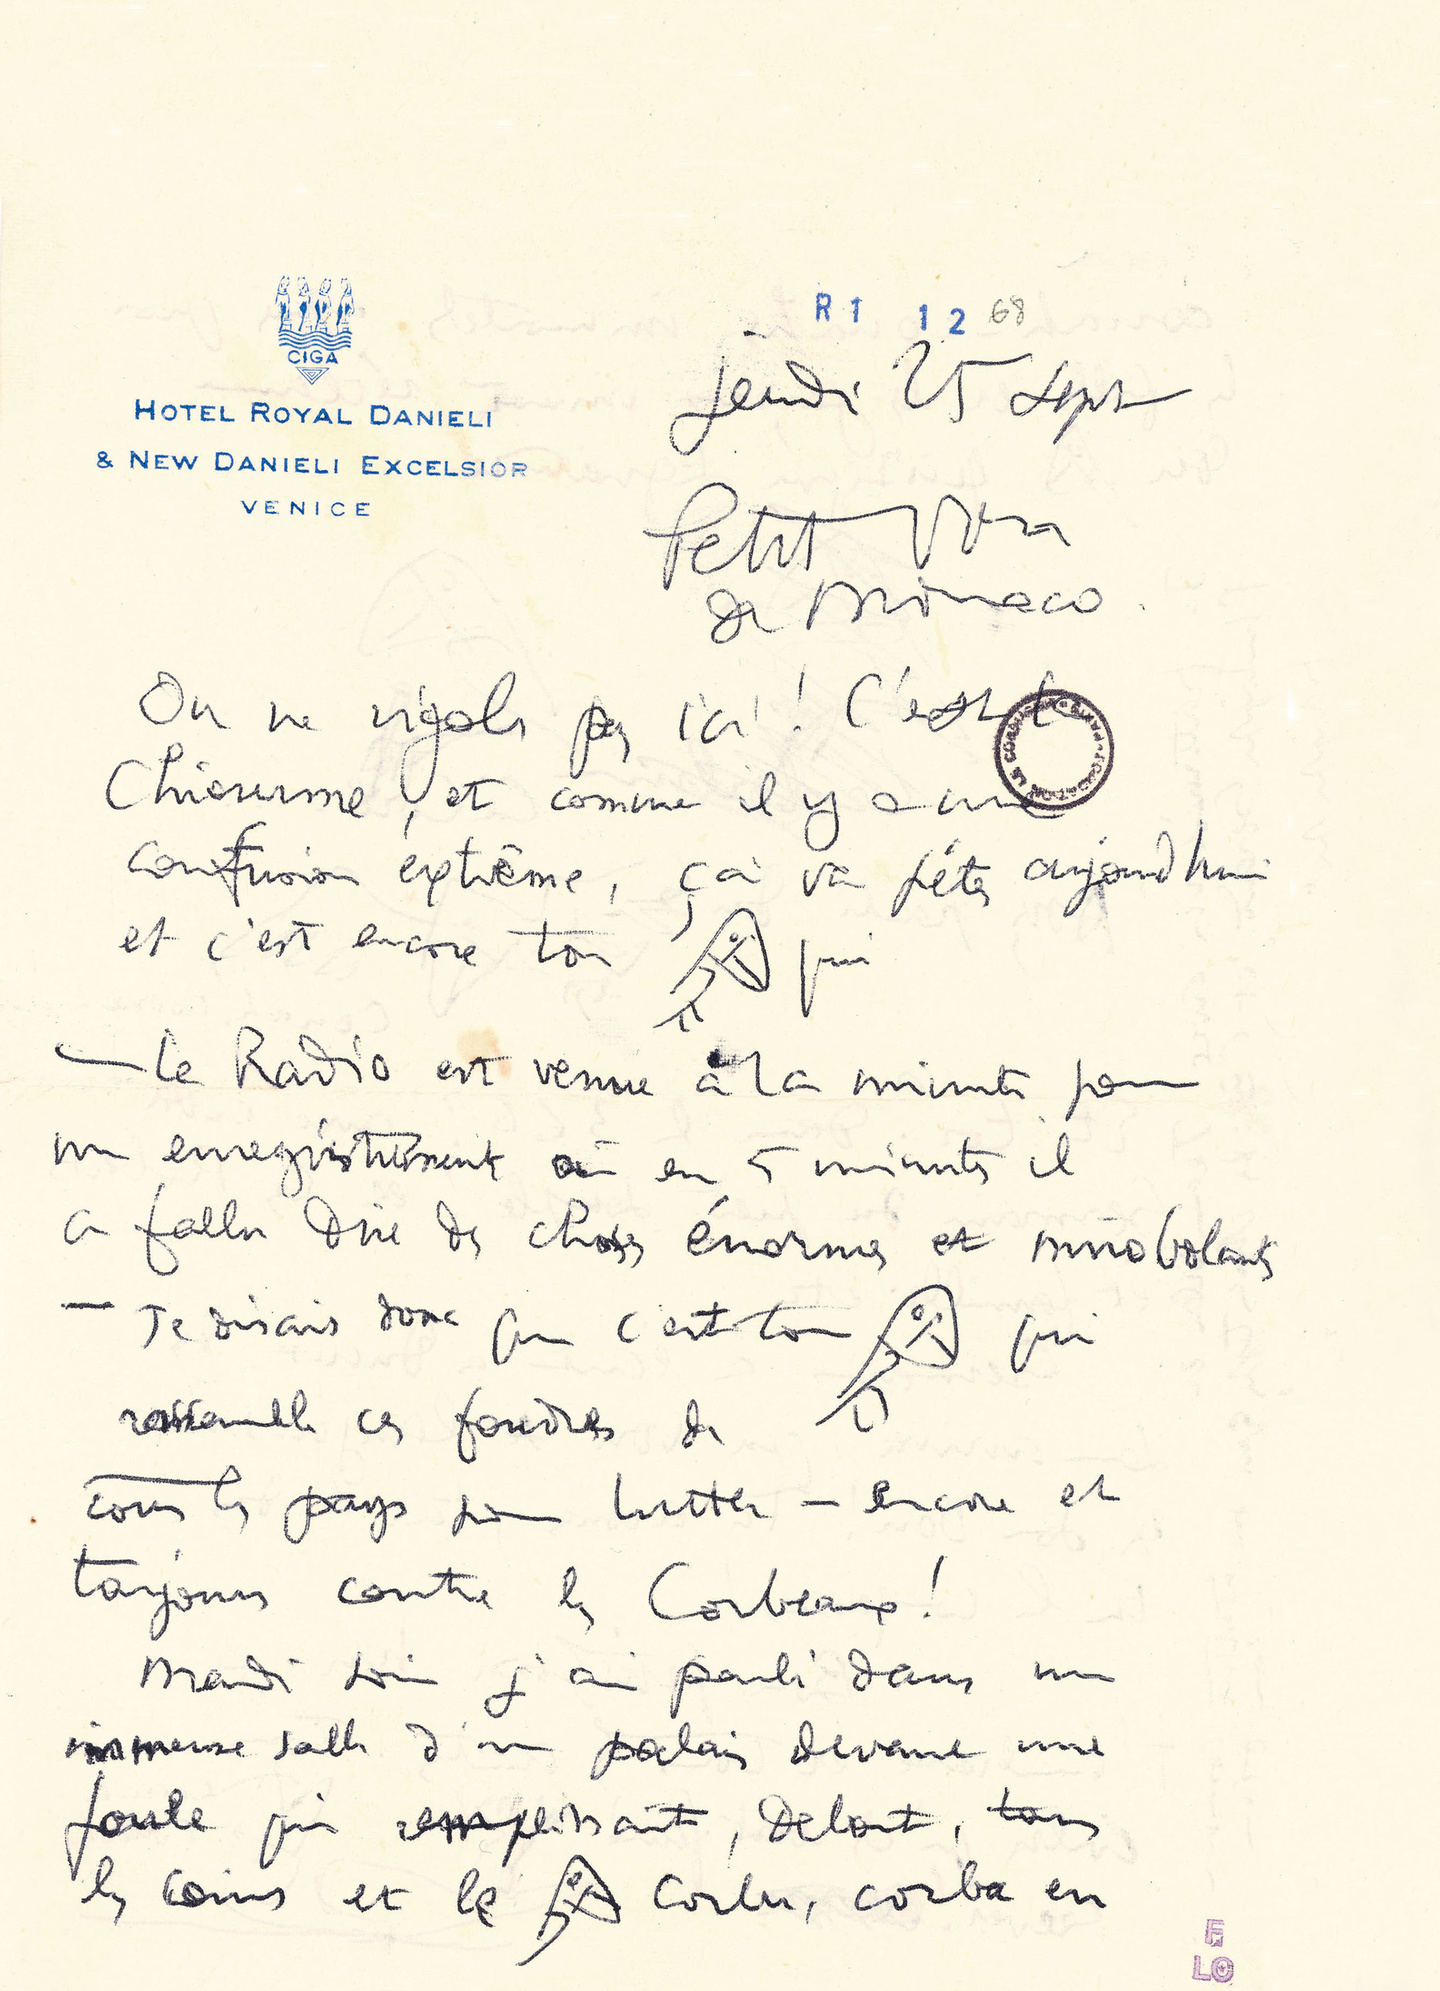 R1 12 68
CIGA
HOTEL ROYAL DANIELI
& NEW DANIELI EXCELSIOR
VENICE
jeudi 25 Sept
Petit Von
de Monaco.
On ne rigole pas ici ! C'est
Chiourme, et comme il y a une
confusion extrême, ça va péter aujourd'hui
et c'est encore ton qui
— la Radio est venue à la minute pour
un enregistrement où en 5 minutes il
a fallu dire des choses énormes et mirobolantes
— Je disais donc que c'est ton qui
rassemble ces foudres de
tous les pays pour lutter — encore et
toujours contre les Corbeaux !
Mardi soir j'ai parlé dans une
immense salle d'un palais devant une
foule qui remplissait, debout, tous
les coins et le Corbu, corba en
FONDATION LE CORBUSIER PARIS
F
LC